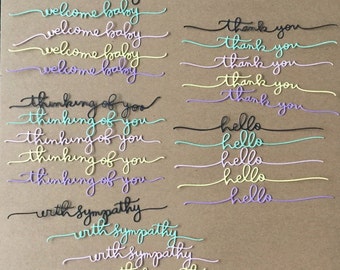 welcome baby
welcome baby
welcome baby
welcome baby
thinking of you
thinking of you
thinking of you
thinking of you
thinking of you
with sympathy
with sympathy
with sympathy
thank you
thank you
thank you
thank you
thank you
hello
hello
hello
hello
hello